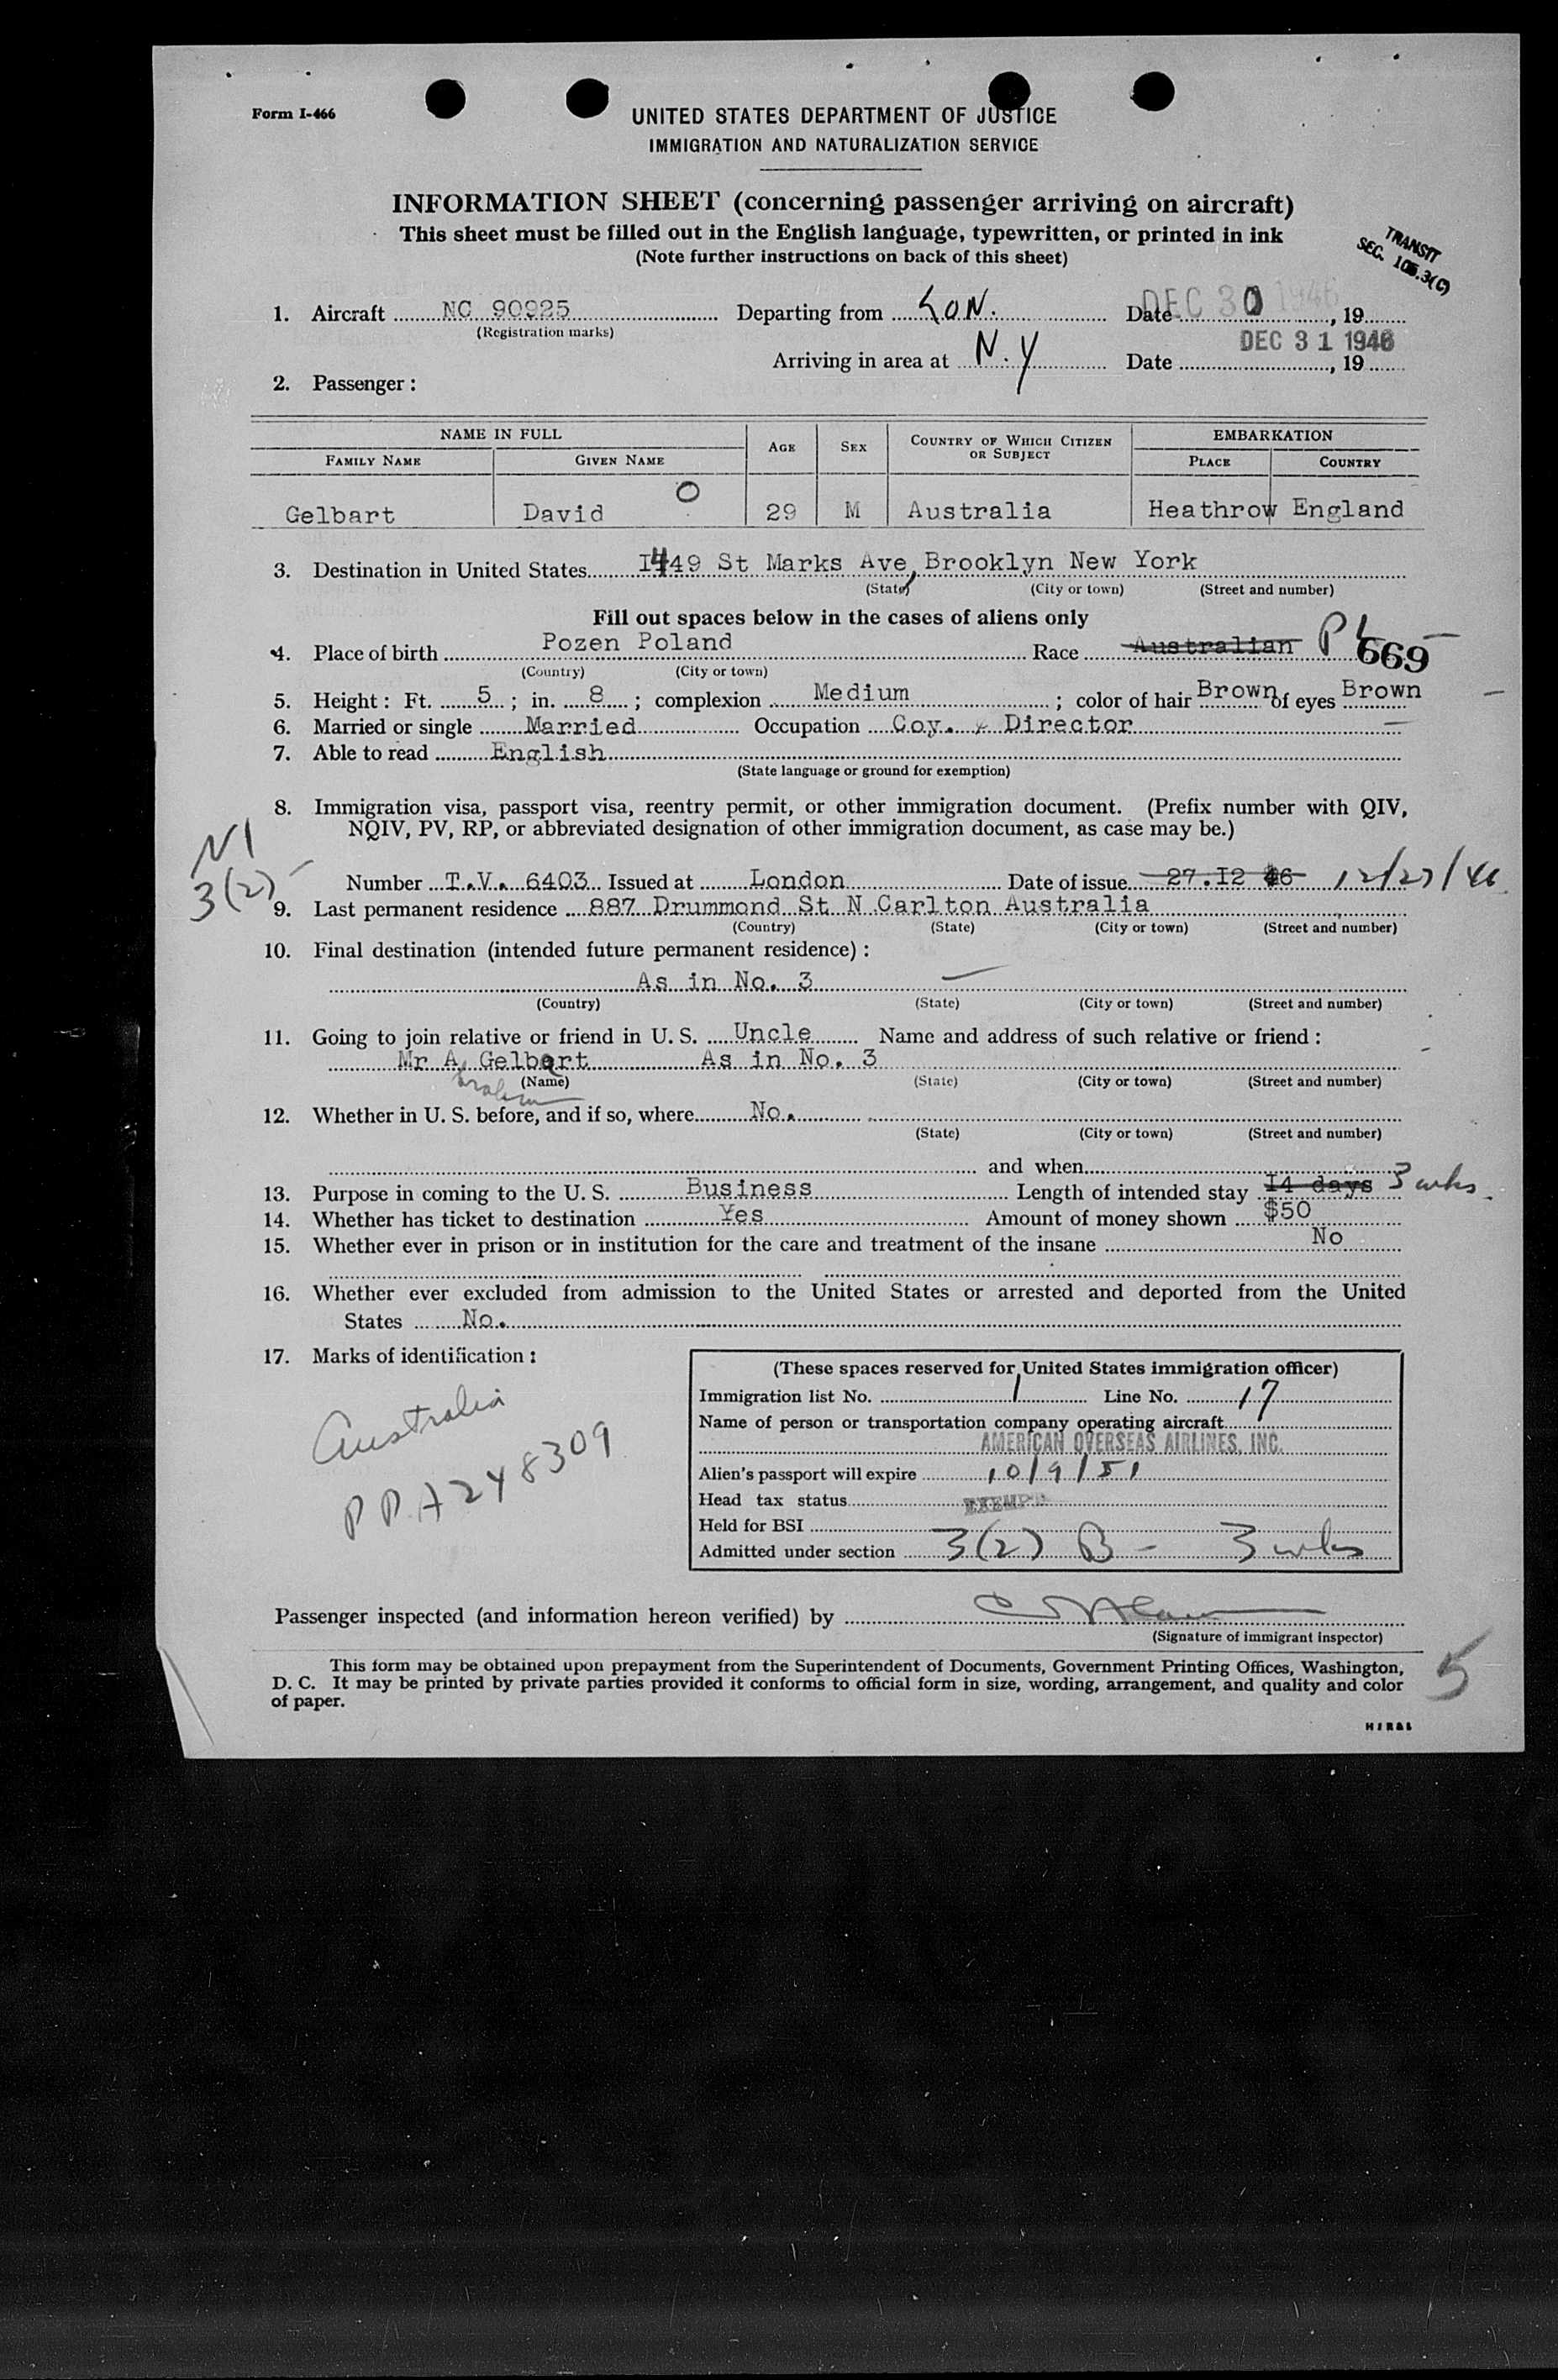 Form I-466
UNITED STATES DEPARTMENT OF JUSTICE
IMMIGRATION AND NATURALIZATION SERVICE
INFORMATION SHEET (concerning passenger arriving on aircraft)
This sheet must be filled out in the English language, typewritten, or printed in ink
(Note further instructions on back of this sheet)
TRANSIT
SEC. 105.3(C)
1. Aircraft NC 90925 Departing from LON. Date DEC 30 1946, 19
(Registration marks)
DEC 31 1946
Arriving in area at N.Y Date , 19
2. Passenger :
NAME IN FULL AGE SEX COUNTRY OF WHICH CITIZEN OR SUBJECT EMBARKATION
FAMILY NAME GIVEN NAME PLACE COUNTRY
Gelbart David O 29 M Australia Heathrow England
3. Destination in United States I449 St Marks Ave, Brooklyn New York
(State) (City or town) (Street and number)
Fill out spaces below in the cases of aliens only
4. Place of birth Pozen Poland Race Australian PL 669
(Country) (City or town)
5. Height : Ft. 5 ; in. 8 ; complexion Medium ; color of hair Brown of eyes Brown
6. Married or single Married Occupation Coy. Director
7. Able to read English
(State language or ground for exemption)
8. Immigration visa, passport visa, reentry permit, or other immigration document. (Prefix number with QIV,
NQIV, PV, RP, or abbreviated designation of other immigration document, as case may be.)
NI
3(2)
Number T.V. 6403 Issued at London Date of issue 27.I2 46 12/27/46
9. Last permanent residence 887 Drummond St N Carlton Australia
(Country) (State) (City or town) (Street and number)
10. Final destination (intended future permanent residence) :
As in No. 3
(Country) (State) (City or town) (Street and number)
11. Going to join relative or friend in U. S. Uncle Name and address of such relative or friend :
Mr A Gelbart As in No. 3
(Name) (State) (City or town) (Street and number)
12. Whether in U. S. before, and if so, where No.
(State) (City or town) (Street and number)
and when
13. Purpose in coming to the U. S. Business Length of intended stay I4 days 3 wks.
14. Whether has ticket to destination Yes Amount of money shown $50
15. Whether ever in prison or in institution for the care and treatment of the insane No
16. Whether ever excluded from admission to the United States or arrested and deported from the United
States No.
17. Marks of identification :
Australia
PP A248309
(These spaces reserved for United States immigration officer)
Immigration list No. 1 Line No. 17
Name of person or transportation company operating aircraft
AMERICAN OVERSEAS AIRLINES, INC.
Alien's passport will expire 10/9/51
Head tax status EXEMPT
Held for BSI
Admitted under section 3(2) B - 3 wks
Passenger inspected (and information hereon verified) by
(Signature of immigrant inspector)
This form may be obtained upon prepayment from the Superintendent of Documents, Government Printing Offices, Washington,
D. C. It may be printed by private parties provided it conforms to official form in size, wording, arrangement, and quality and color
of paper.
5